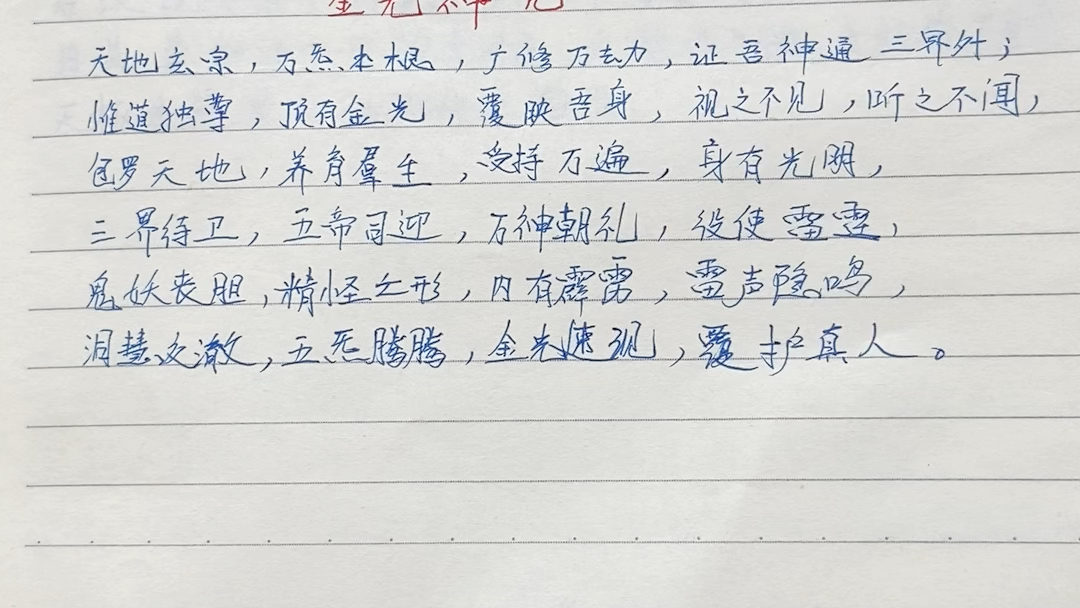 金光神咒
天地玄宗，万炁本根，广修万劫，证吾神通三界外；
惟道独尊，顶有金光，覆映吾身，视之不见，听之不闻，
包罗天地，养育羣生，受持万遍，身有光明，
三界待卫，五帝司迎，万神朝礼，役使雷霆，
鬼妖丧胆，精怪亡形，内有霹雳，雷声隐鸣，
洞慧交澈，五炁腾腾，金光速现，覆护真人。